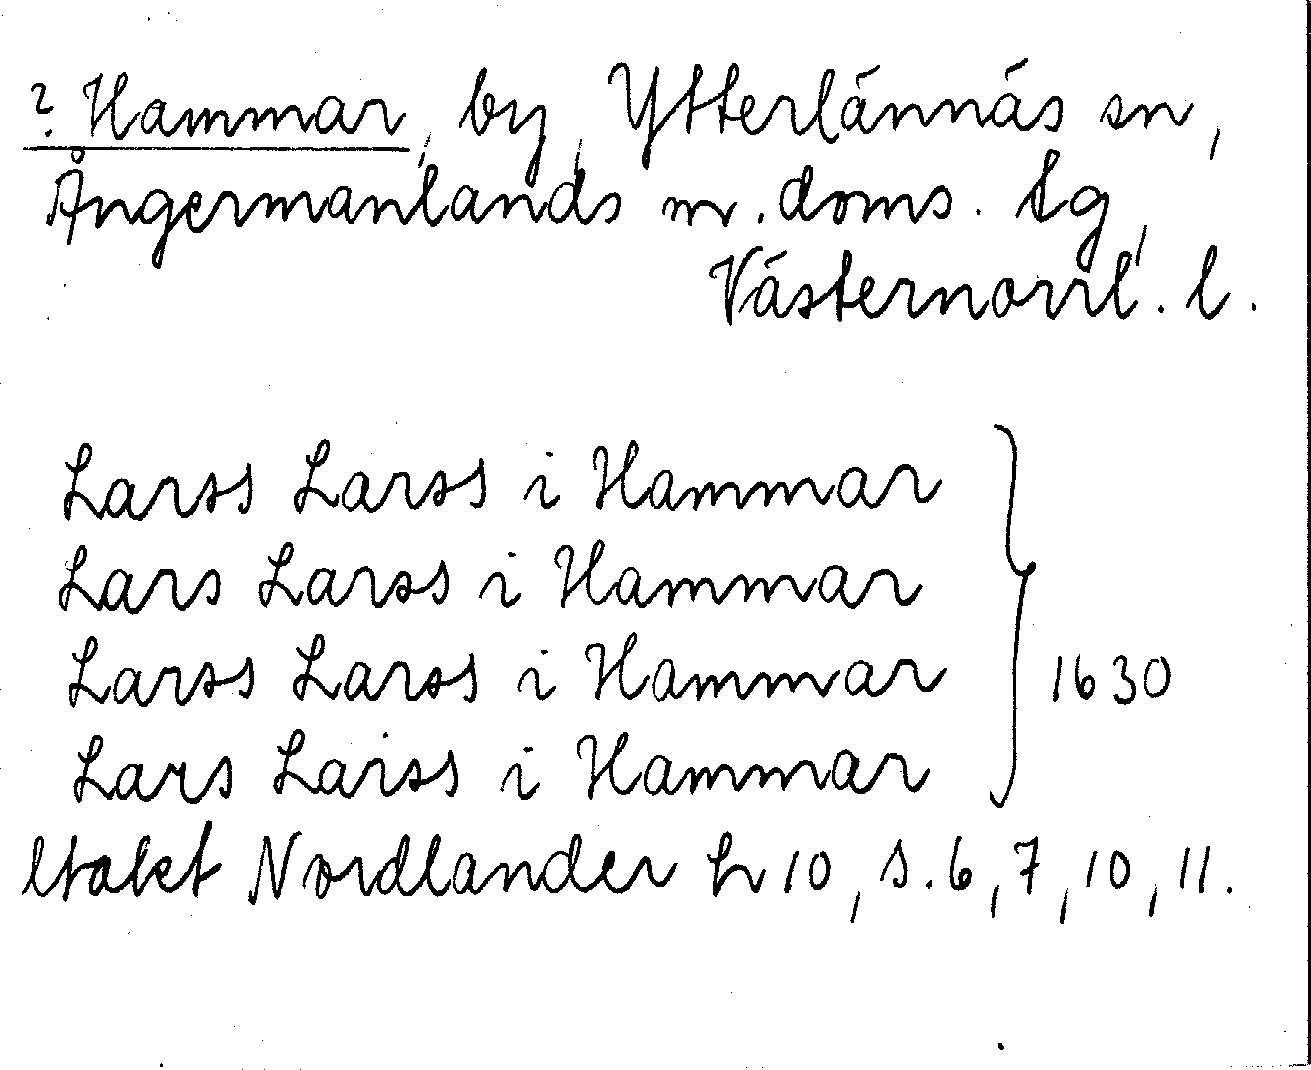 ? Hammar, by, Ytterlännäs sn,
Ångermanlands m. doms. tg,
Västernorrl. l.
Larss Larss i Hammar
Lars Larss i Hammar
Larss Larss i Hammar
Lars Larss i Hammar
1630
Nordlander h 10, s. 6, 7, 10, 11.